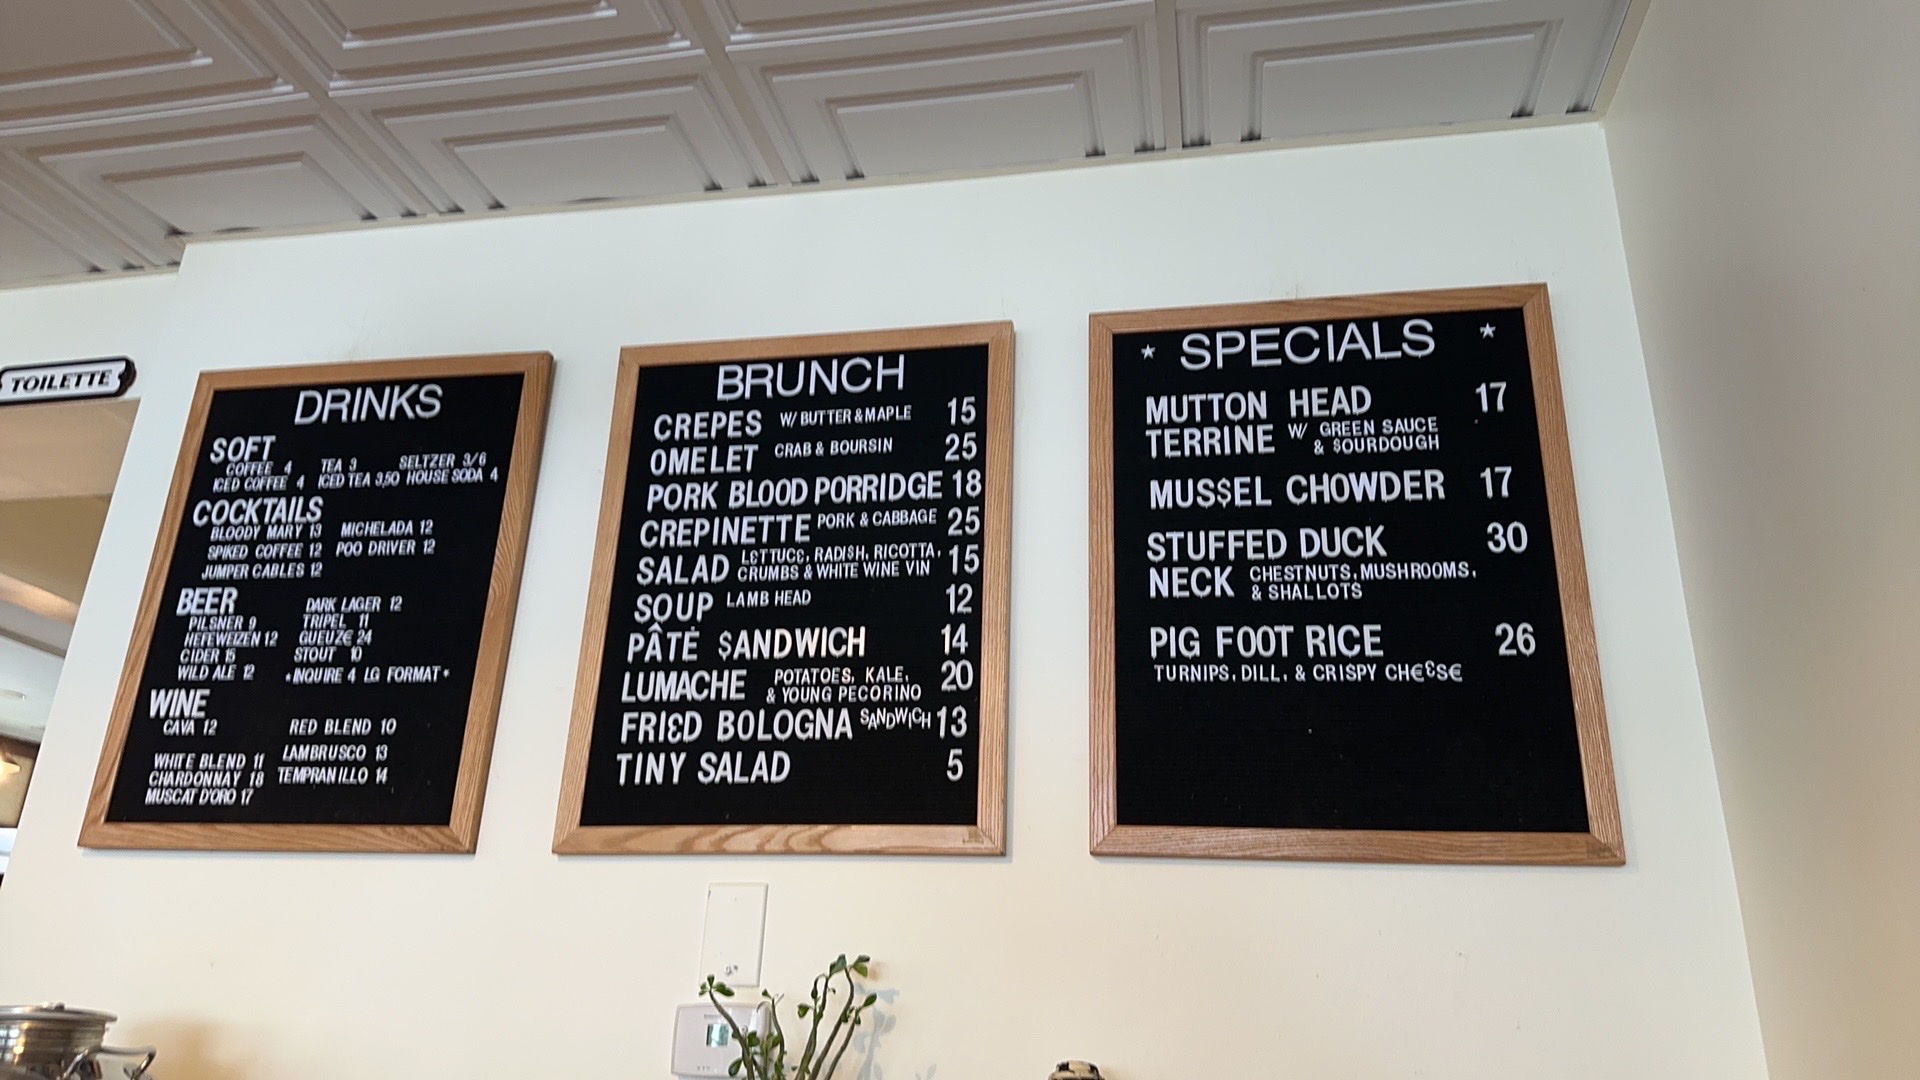 TOILETTE
DRINKS
SOFT
COFFEE 4 TEA 3 SELTZER 3/6
ICED COFFEE 4 ICED TEA 3,50 HOUSE SODA 4
COCKTAILS
BLOODY MARY 13 MICHELADA 12
SPIKED COFFEE 12 POO DRIVER 12
JUMPER CABLES 12
BEER
DARK LAGER 12
PILSNER 9 TRIPEL 11
HEFEWEIZEN 12 GUEUZ€ 24
CIDER 15 STOUT 10
WILD ALE 12 *INQUIRE 4 LG FORMAT*
WINE
CAVA 12 RED BLEND 10
WHITE BLEND 11 LAMBRUSCO 13
CHARDONNAY 18 TEMPRANILLO 14
MUSCAT D'ORO 17
BRUNCH
CREPES W/ BUTTER & MAPLE 15
OMELET CRAB & BOURSIN 25
PORK BLOOD PORRIDGE 18
CREPINETTE PORK & CABBAGE 25
SALAD L€TTUC€, RADI$H, RICOTTA, 15
CRUMBS & WHITE WINE VIN
SOUP LAMB HEAD 12
PÂTÉ $ANDWICH 14
LUMACHE POTATOES, KALE, 20
& YOUNG PECORINO
FRI€D BOLOGNA SANDWICH 13
TINY SALAD 5
* SPECIALS *
MUTTON HEAD 17
TERRINE W/ GREEN SAUCE
& $OURDOUGH
MUS$EL CHOWDER 17
STUFFED DUCK 30
NECK CHESTNUTS, MUSHROOMS,
& SHALLOTS
PIG FOOT RICE 26
TURNIPS, DILL, & CRISPY CH€€S€